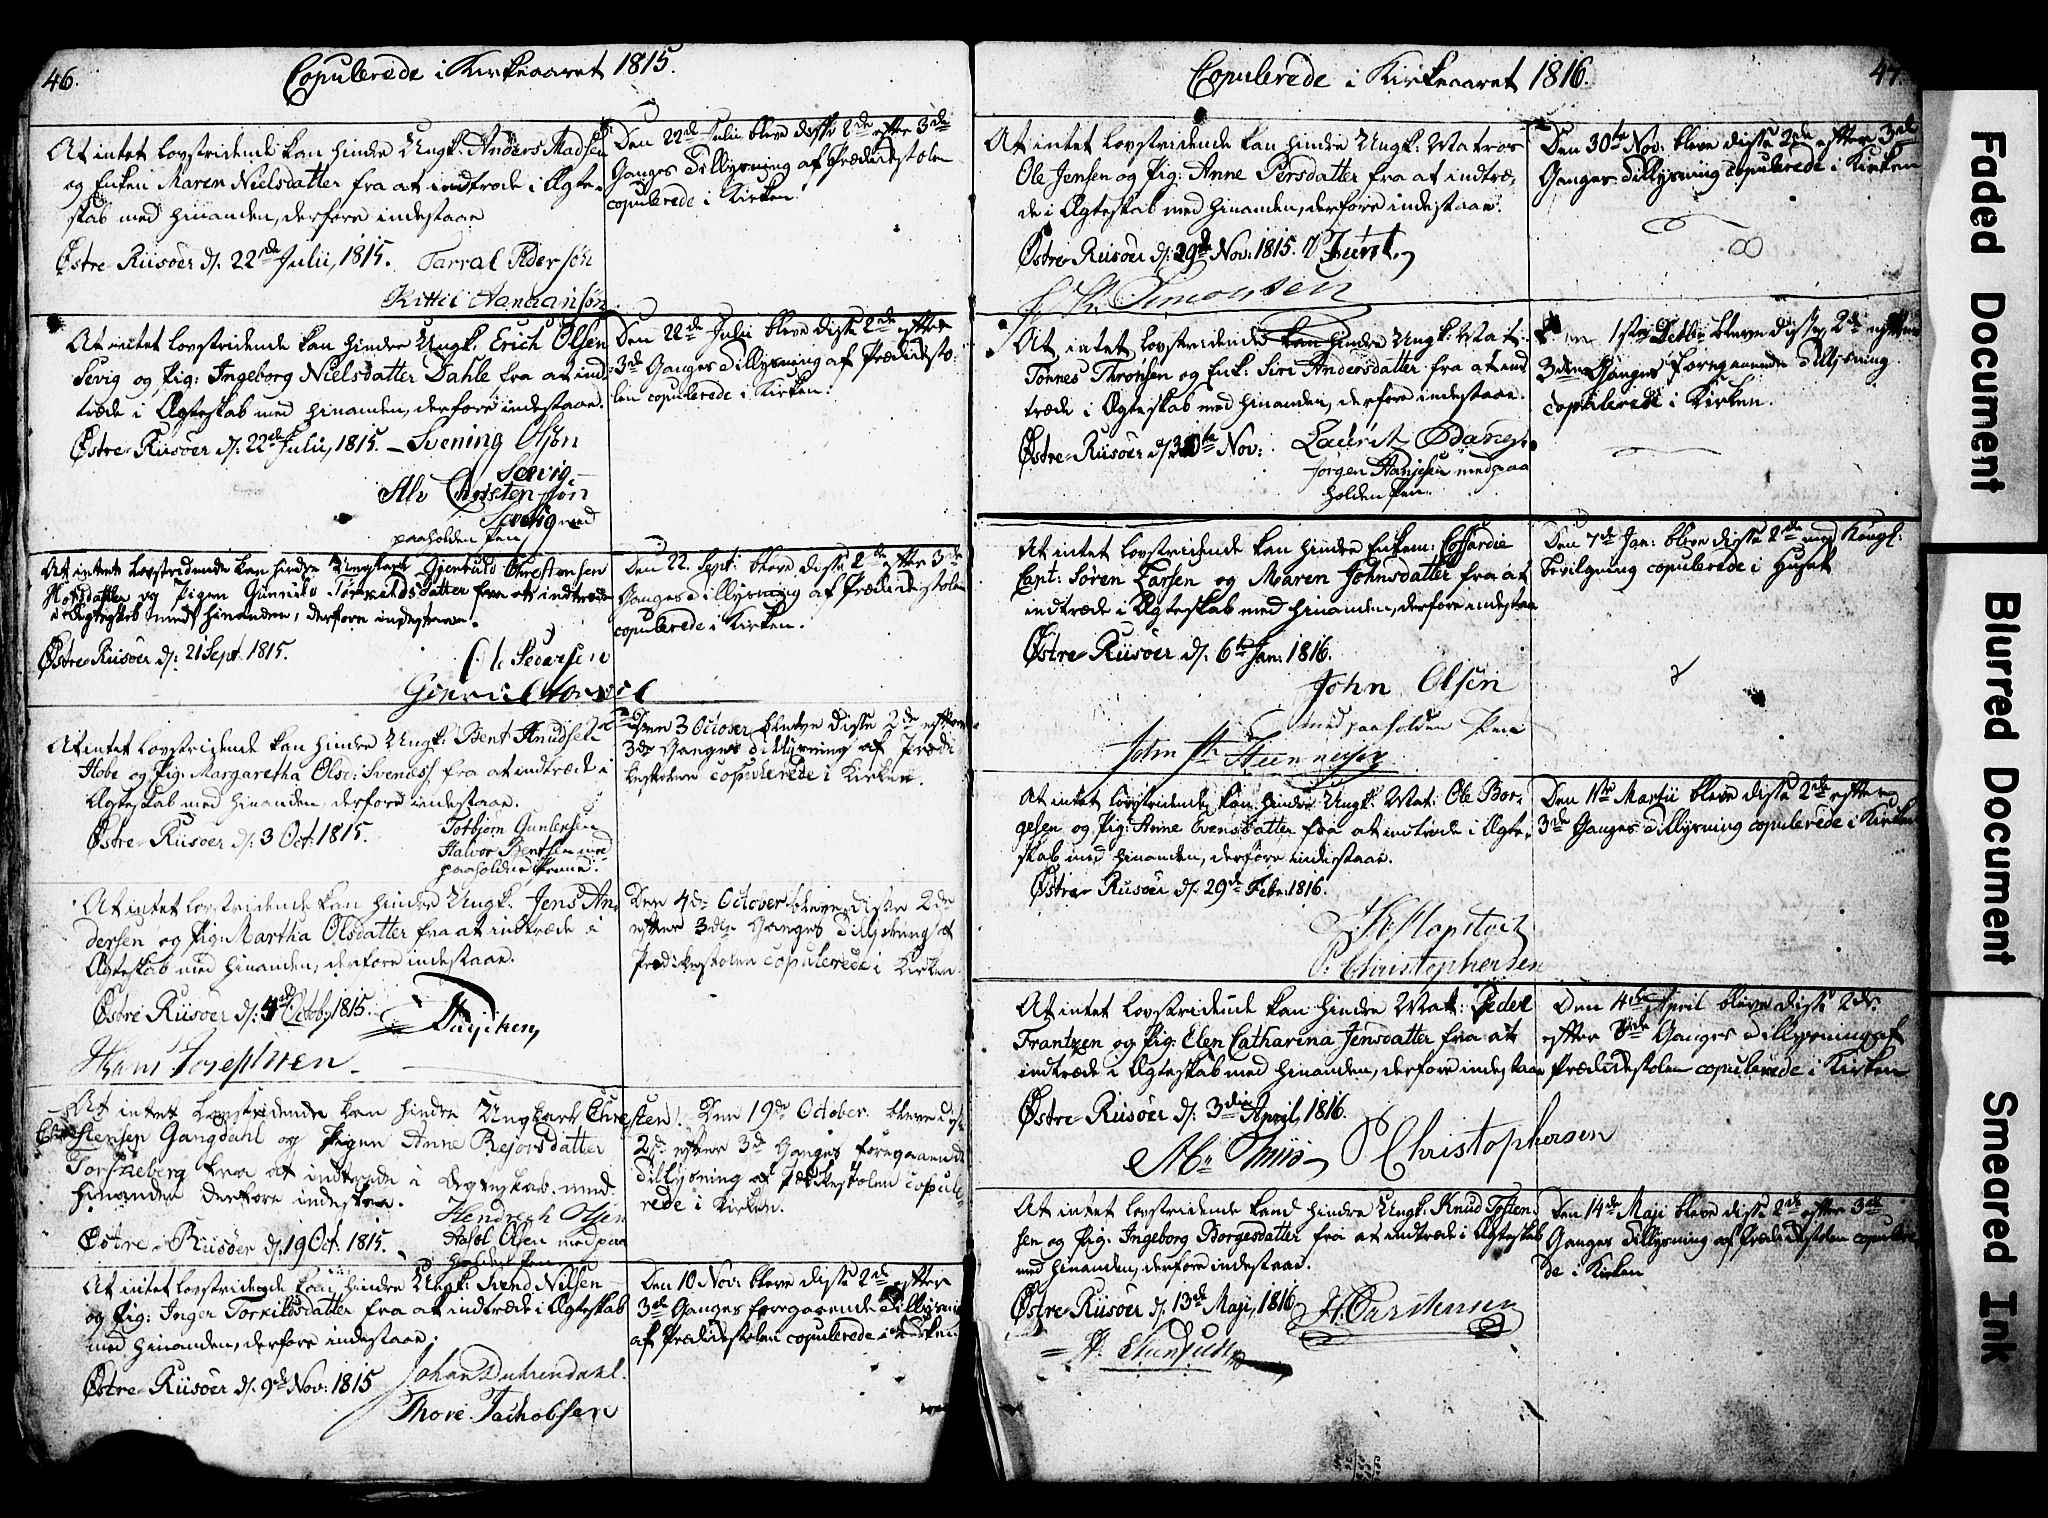 46.
Copulerede i Kirkeaaret 1815.
At intet lovstridende kan hindre Ungk: Anders Madsen
og Enken Maren Nielsdatter fra at indtræde i Ægte-
skab med hinanden, derfore indestaae
Østre-Riisöer d/: 22de Julii, 1815. Tarral Pedersøn
Kittil Aanaansøn
Den 22de Julii bleve disse 2de efter 3de
Ganges Tillysning af Prædikestolen
copulerede i Kirken.
At intet lovstridende kan hindre Ungk: Erich Olsen
Sevig og Pig: Ingeborg Nielsdatter Dahle fra at ind-
træde i Ægteskab med hinanden, derfore indestaae.
Østre-Riisöer d/: 22de Julii, 1815. - Svening Olsøn
Sævig
Alv Christensøn
Sævig med
paaholden Pen
Den 22de Julii bleve disse 2de efter
3de Ganges Tillysning af Prædikesto-
len copulerede i Kirken.
At intet lovstridende kan hindre Ungkarl Gjerulld Christensen
og Pigen Gunnild Tørkeldsdatter fra at indtræde
i Ægteskab med hinanden, derfore indestaae.
Østre-Riisöer d/: 21 Sept. 1815.
Ole Pedersen
Den 22. Sept: bleve disse 2de efter 3de
Ganges Tillysning af Prædikestolen
copulerede i Kirken.
At intet lovstridende kan hindre Ungk: Bent Knudsen
Hobe og Pig: Margaretha Olsd: Svenæss. fra at indtræde i
Ægteskab med hinanden, derfore indestaae.
Østre-Riisöer d/: 3 Oct: 1815.
Torbjörn Gunlersen
Halvor Bentsen med
paaholden Penne.
Den 3 October bleve disse 2de efter
3de Ganges Tillysning af Prædi
kestolen copulerede i Kirken.
At intet lovstridende kan hindre Ungk. Jens An-
dersen og Pig: Martha Olsdatter fra at indtræde i
Ægteskab med hinanden, derfore indestaae.
Østre Riisöer d/: 4de Octob. 1815.
Hans Josephsen.
Den 4de October bleve disse 2de
efter 3die Ganges Tillysning af
Prædikestolen copulerede i Kirken.
At intet lovstridende kan hindre Ungkarl Chresten
Christensen Gangdahl og Pigen Anne Rejorsdatter
Torskeberg fra at indtræde i Ægteskab med
hinanden derfore indestaae.
Østre-Riisöer d/: 19 Oct. 1815.
Hendrich Olsen
Olsen med paa
holden Pen
Den 19de October bleve disse
2de efter 3de Ganges foregaaende
Tillysning af Prækestolen copule-
rede i Kirken.
At intet lovstridende kan hindre Ungk: Svend Nilsen
og Pig: Inger Torkildsdatter fra at indtræde i Ægteskab
med hinanden, derfore indestaae.
Østre-Riisöer d/: 9de Nov: 1815
Johan Duhrendahl.
Thore Jachobsen
Den 10 Nov: bleve disse 2de efter
3de Ganges foregaaende Tillysning
af Prædikestolen copulerede i Kirken
Copulerede i Kirkeaaret 1816.
47.
At intet lovstridende kan hindre Ungk: Matros
Ole Jensen og Pig: Anne Persdatter fra at indtræ-
de i Ægteskab med hinanden, derfore indestaae.
Østre-Riisöer d/: 29de Nov: 1815.
Simonsen
Den 30te Nov: bleve disse 2de efter 3de
Ganges Tillysning copulerede i Kirken
At intet lovstridende kan hindre Ungk: Mat:
Tönnes Thronsen og Enk: Siri Andersdatter fra at ind
træde i Ægteskab med hinanden, derfore indestaae.
Østre-Riisöer d/: 30te Nov: Laurit Odans
Jørgen Hansen med paa
holden Pen.
Den 1ste Decbr bleve disse 2de efter
3die Ganges foregaaende Tillysning
copulerede i Kirken.
At intet lovstridende kan hindre Enkem: Coffardie
Capt: Søren Larsen og Maren Johnsdatter fra at
indtræde i Ægteskab med hinanden, derfore indestaae
Østre-Riisöer d/: 6te Jan: 1816.
John Olsen
med paaholden Pen
Den 7de Jan: bleve disse 2de med Kongl:
Bevilgning copulerede i Huset
At intet lovstridende kan hindre Ungk: Mat: Ole Bor-
gesen og Pig: Anne Evensdatter fra at indtræde i Ægte-
skab med hinanden, derfore indestaae.
Østre-Riisöer d/: 29de Febr: 1816.
P. Christophersen
Den 11te Martii bleve disse 2de efter
3de Ganges Tillysning copulerede i Kirken
At intet lovstridende kan hindre Mat: Peder
Frantzen og Pig: Elen Catharina Jensdatter fra at
indtræde i Ægteskab med hinanden, derfore indestaae
Østre-Riisöer d/: 3die April, 1816.
P Christophersen
Den 4de April bleve disse 2de
efter 3de Ganges Tillysning af
Prædikestolen copulerede i Kirken
At intet lovstridende kand hindre Ungk: Knud Tosten-
sen og Pig: Ingeborg Borgesdatter fra at indtræde i Ægteskab
med hinanden, derfore indestaae.
Østre-Riisöer d/: 13de Maji, 1816. H. Carstensen
Den 14de Maji bleve disse 2de efter 3de
Ganges Tillysning af Prædikestolen copulere
de i Kirken
Faded Document
Blurred Document
Smeared Ink